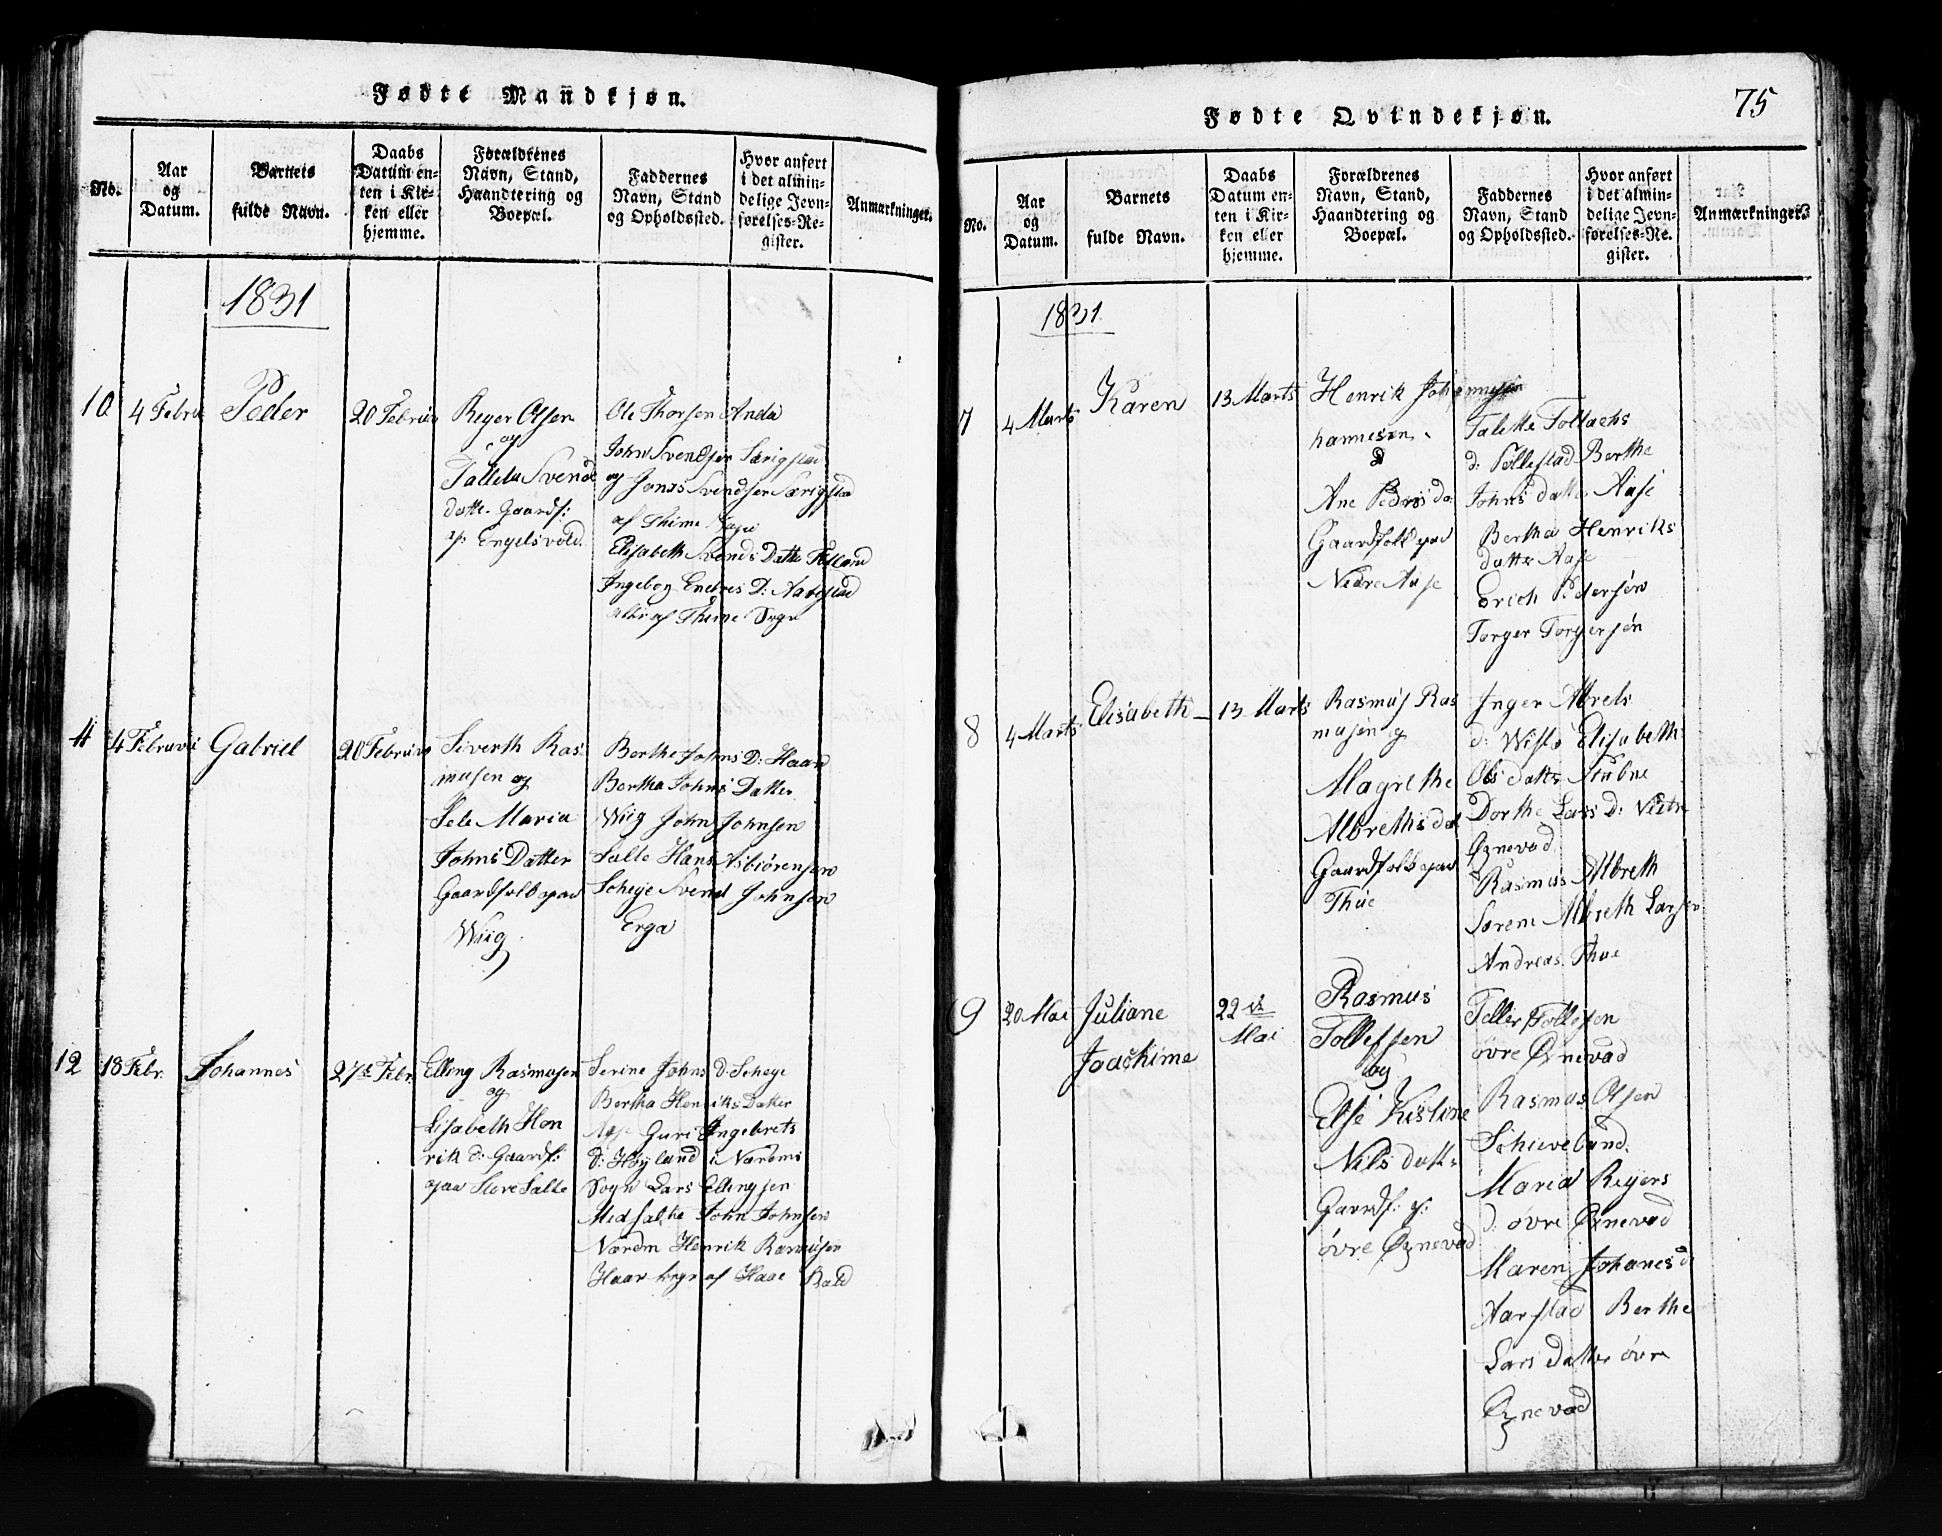 Fødte Mandkjøn.
No.
Aar
og
Datum.
Barnets
fulde Navn.
Daabs
Datum en-
ten i Kir-
ken eller
hjemme.
Forældrenes
Navn, Stand,
Haandtering og
Boepæl.
Faddernes
Navn, Stand
og Opholdssted.
Hvor anført
i det almin-
delige Jevn-
førelses-Re-
gister.
Anmærkninger.
1831
10
4 Febru
Peder
20 Februar
Reyer Olsen
og
Tallela Svends
datte. Gaardf:
p: Engelsvold.
Ole Thorsen Anda
John Svendsen Særigstad
og Jonas Svendsen Særigstad
af Thime Sogn
Elisabeth Svends Datte
Ingebog Enebres D:
af Thime Sogn
4
4 Februari
Gabriel
20 Februar
Siverth Ras
musen og
Sele Maria
Johns Datter
Gaardfolk paa
Wiig
Berthe Johns D: Haar
Bertha Johns Datter
Wiig John Johnsen
Salte Hans Asbiørensen
Scheje Svend Johnsen
Erga
12
18 Febr.
Johannes
27de Febr.
Elling Rasmusen
og
Lisabeth Hen
rik d: Gaardf:
paa Store Salte
Serine Johns d: Scheje
Bertha Henriks Datter
Guri Ingebrets
d: Høyland i Nærems
Sogn Lars Ellingsen
Medsalte John Johnsen
Nærem Henrik Rasmusen
Haar af Haae
75
Fødte Qvindekjøn.
No.
Aar
og
Datum.
Barnets
fulde Navn.
Daabs
Datum en-
ten i Kir-
ken eller
hjemme.
Forældrenes
Navn, Stand,
Haandtering og
Boepæl.
Faddernes
Navn, Stand
og Opholdssted.
Hvor anført
i det almin-
delige Jevn-
førelses-Re-
gister.
Anmærkninger.
1831
7
4 Marts
Karen
13 Marts
Henrik
hannesen
Ane Peders da
Gaardfolk paa
Nedre Aase
Talette Tollachs
d: Pollestad Berthe
Johns datter Aase
Bertha Henriks
datter Aase
Erich Pedersøn
Torger Torgersøn
8
4 Marts
Elisabeth
13 Marts
Rasmus Ras
musen og
Magrethe
Albreths dat
Gaardfolk paa
Thue
Inger Albrets
d: Wistø Elisabeth
Ols datter
Dorthe Lars d: Nedre
Øznevad
Rasmus Albreth
Sørem Albreth Larsen
Andreas Thue
9
20 Mai
Juliane
Joachime
22de
Mai
Rasmus
Tollefsen
og
Else Kistine
Nils datt:
Gaardf: p:
øvre Øznevad
Teller Tollefsen
øvre Øznevad
Rasmus Olsen
Schieveland.
Maria Reyers
d: øvre Øznevad
Maren Johanes d
Harstad Berthe
Lars datter øvre
Øznevad